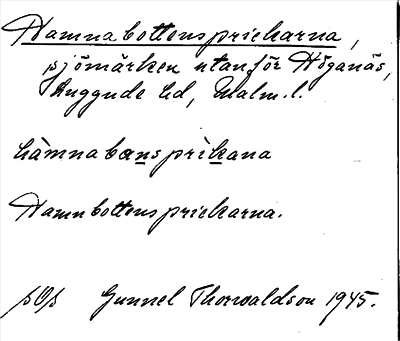 Hamnabottensprickarna,
sjömärken utanför Höganäs,
Luggude hd, Malm. l.
hàmnabɷnsprìkana
Hamnbottensprickarna.
Gunnel Thorwaldson 1945.